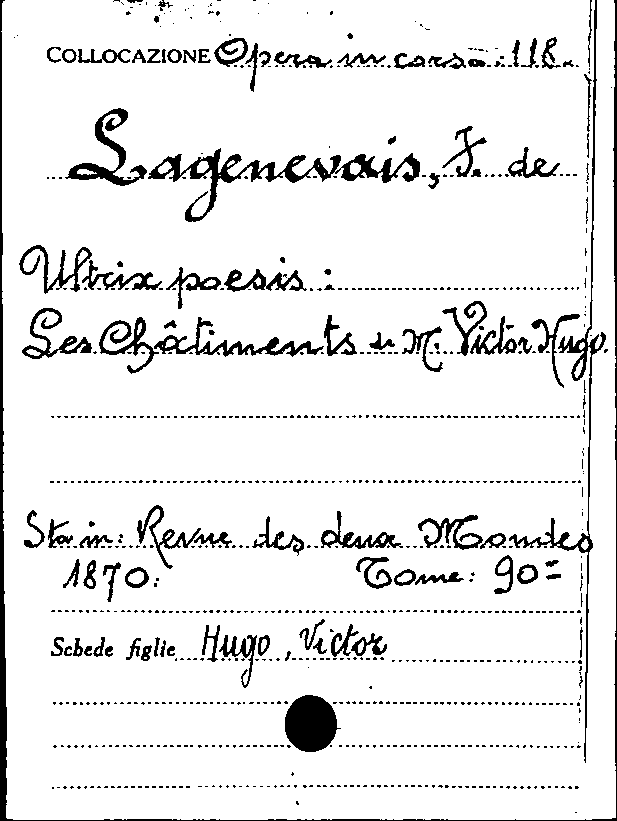 COLLOCAZIONE Opera in corso: 118.
Lagenevais, F. de
Ultrix poesis :
Les Châtiments de M. Victor Hugo.
Sta in: Revue des deux Mondes
1870. Tome: 90=
Schede figlie Hugo, Victor